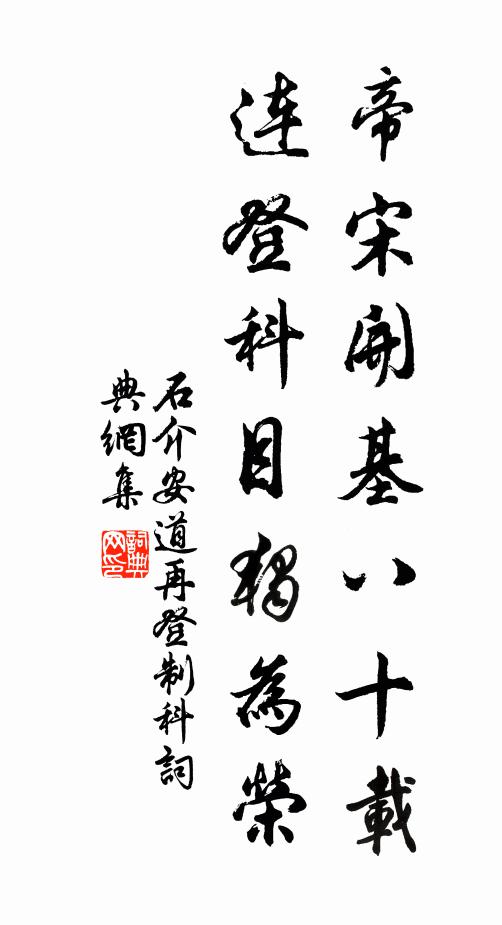 帝宋開基八十載
連登科目獨為榮
石介安道再登制科詞
典網集
詞典
网印